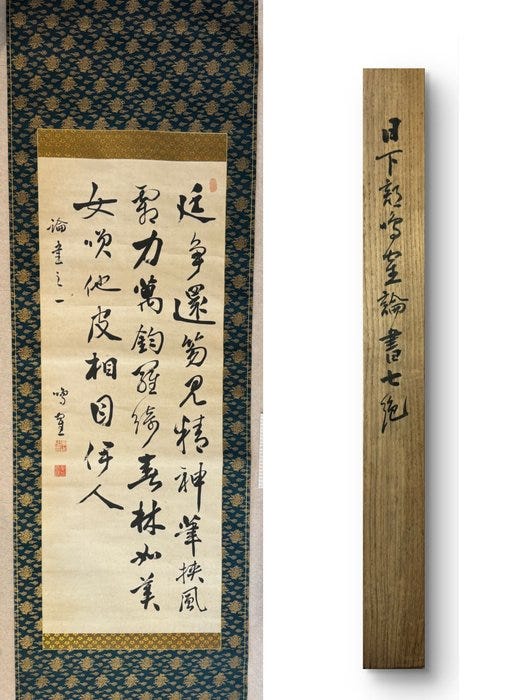 廷争還笏見精神筆挟風
霜力萬鈞羅綺春林如美
女咲他皮相目伊人
論書之一
鳴鶴
日下部鳴鶴論書七絶